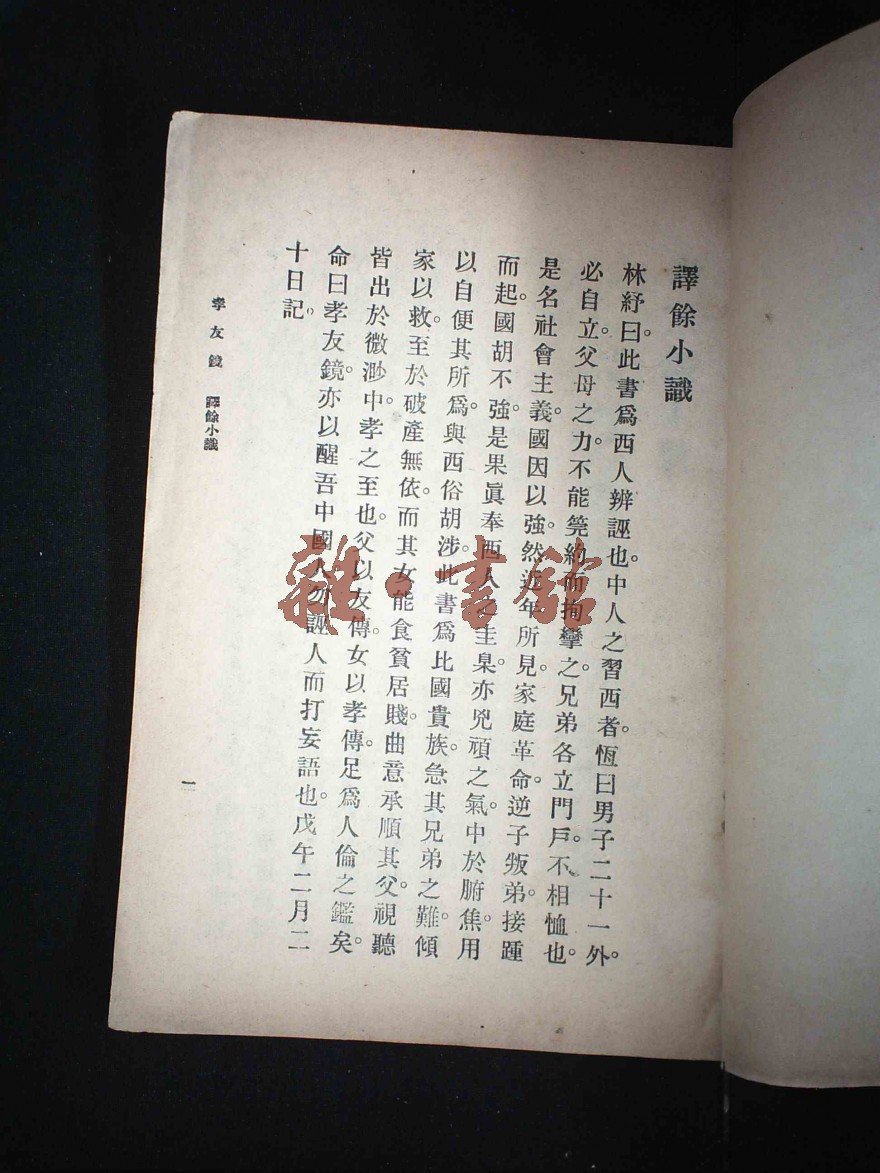 譯餘小識
林紓曰。此書爲西人辨誣也。中人之習西者。恆曰男子二十一外。
必自立。父母之力。不能筦約而拘攣之。兄弟各立門戶。不相恤也。
是名社會主義。國因以強。然近年所見。家庭革命。逆子叛弟。接踵
而起。國胡不強。是果眞奉西人之圭臬。亦兇頑之氣。中於腑焦。用
以自便其所爲。與西俗胡涉。此書爲比國貴族。急其兄弟之難。傾
家以救。至於破產無依。而其女能食貧居賤。曲意承順其父。視聽
皆出於微渺。中孝之至也。父以友傳。女以孝傳。足爲人倫之鑑矣。
命曰孝友鏡。亦以醒吾中國人勿誣人而打妄語也。戊午二月二
十日記。
孝友鏡 譯餘小識
一
雜·書館